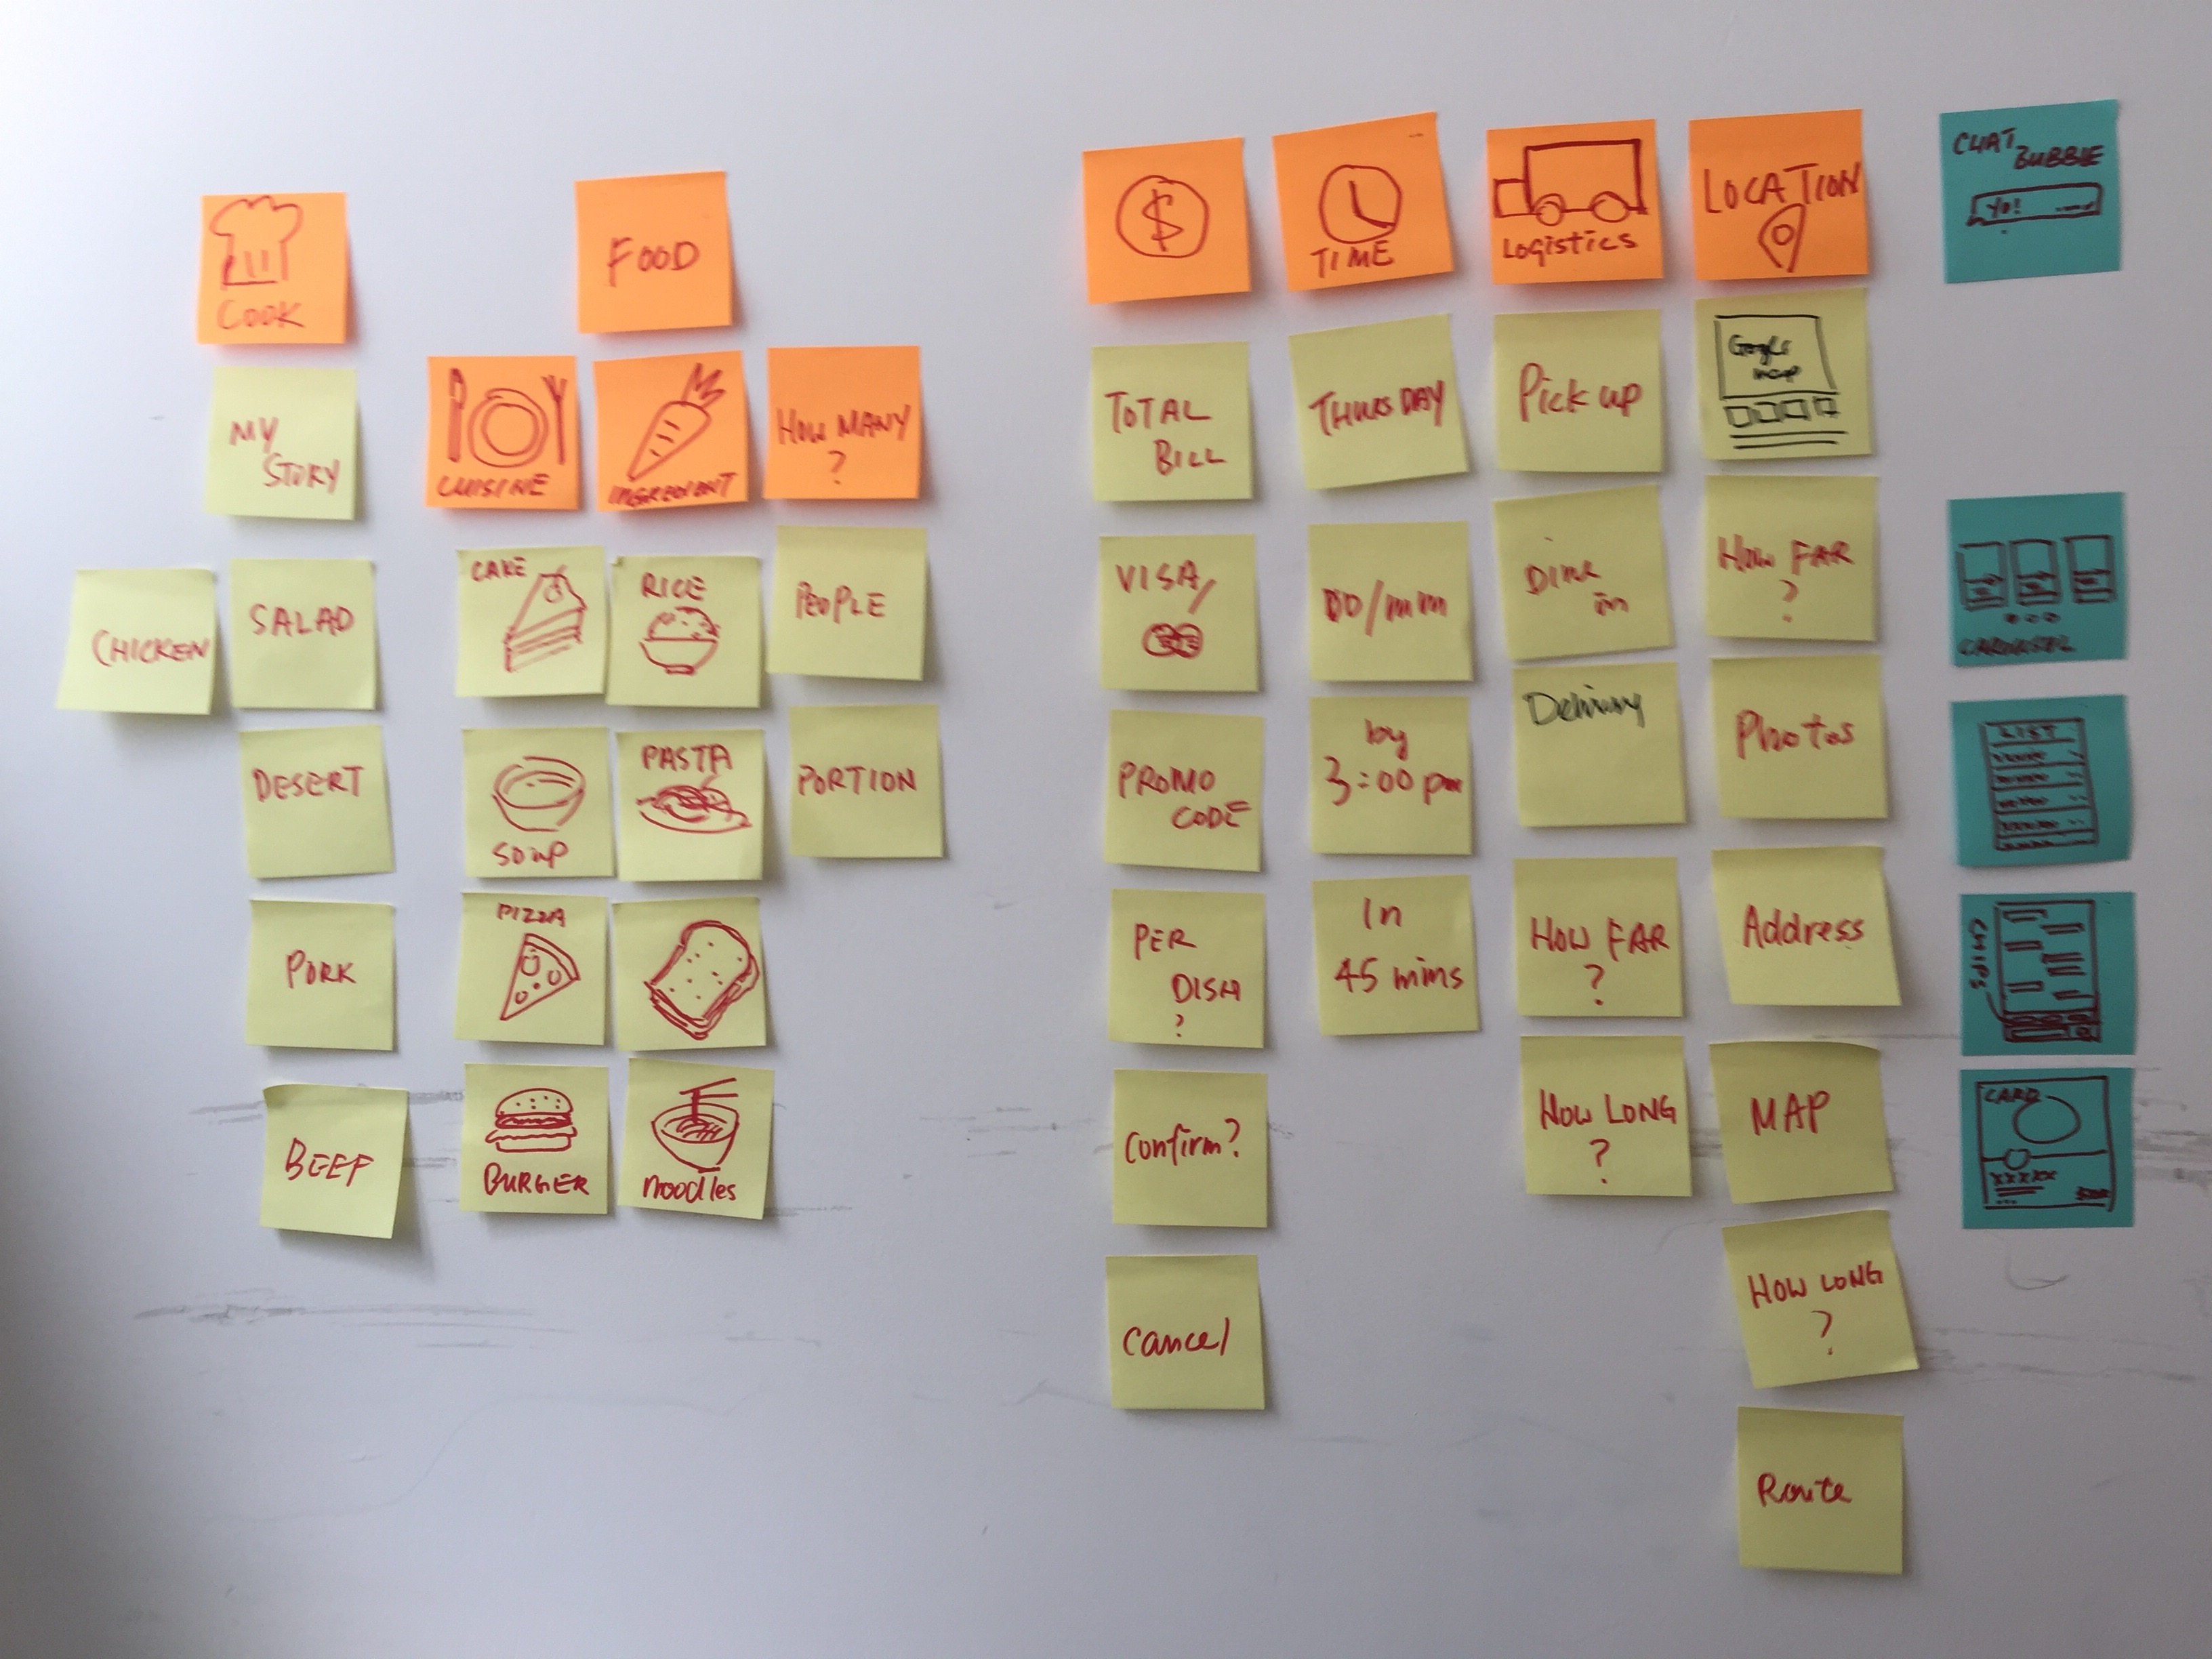 COOK
MY
STORY
CHICKEN
SALAD
DESERT
PORK
BEEF
FOOD
CUISINE
INGREDIENT
HOW MANY
?
CAKE
RICE
PEOPLE
SOUP
PASTA
PORTION
PIZZA
BURGER
noodles
$
TOTAL
BILL
VISA/
PROMO
CODE
PER
DISH
?
Confirm?
Cancel
TIME
THURSDAY
DD/MM
by
3:00 pm
In
45 mins
Logistics
Pick up
Dine
in
Delivery
HOW FAR
?
HOW LONG
?
LOCATION
Google
map
HOW FAR
?
Photos
Address
MAP
HOW LONG
?
Route
CHAT
BUBBLE
Yo!
CAROUSEL
LIST
CHIPS
CARD
XXXXX